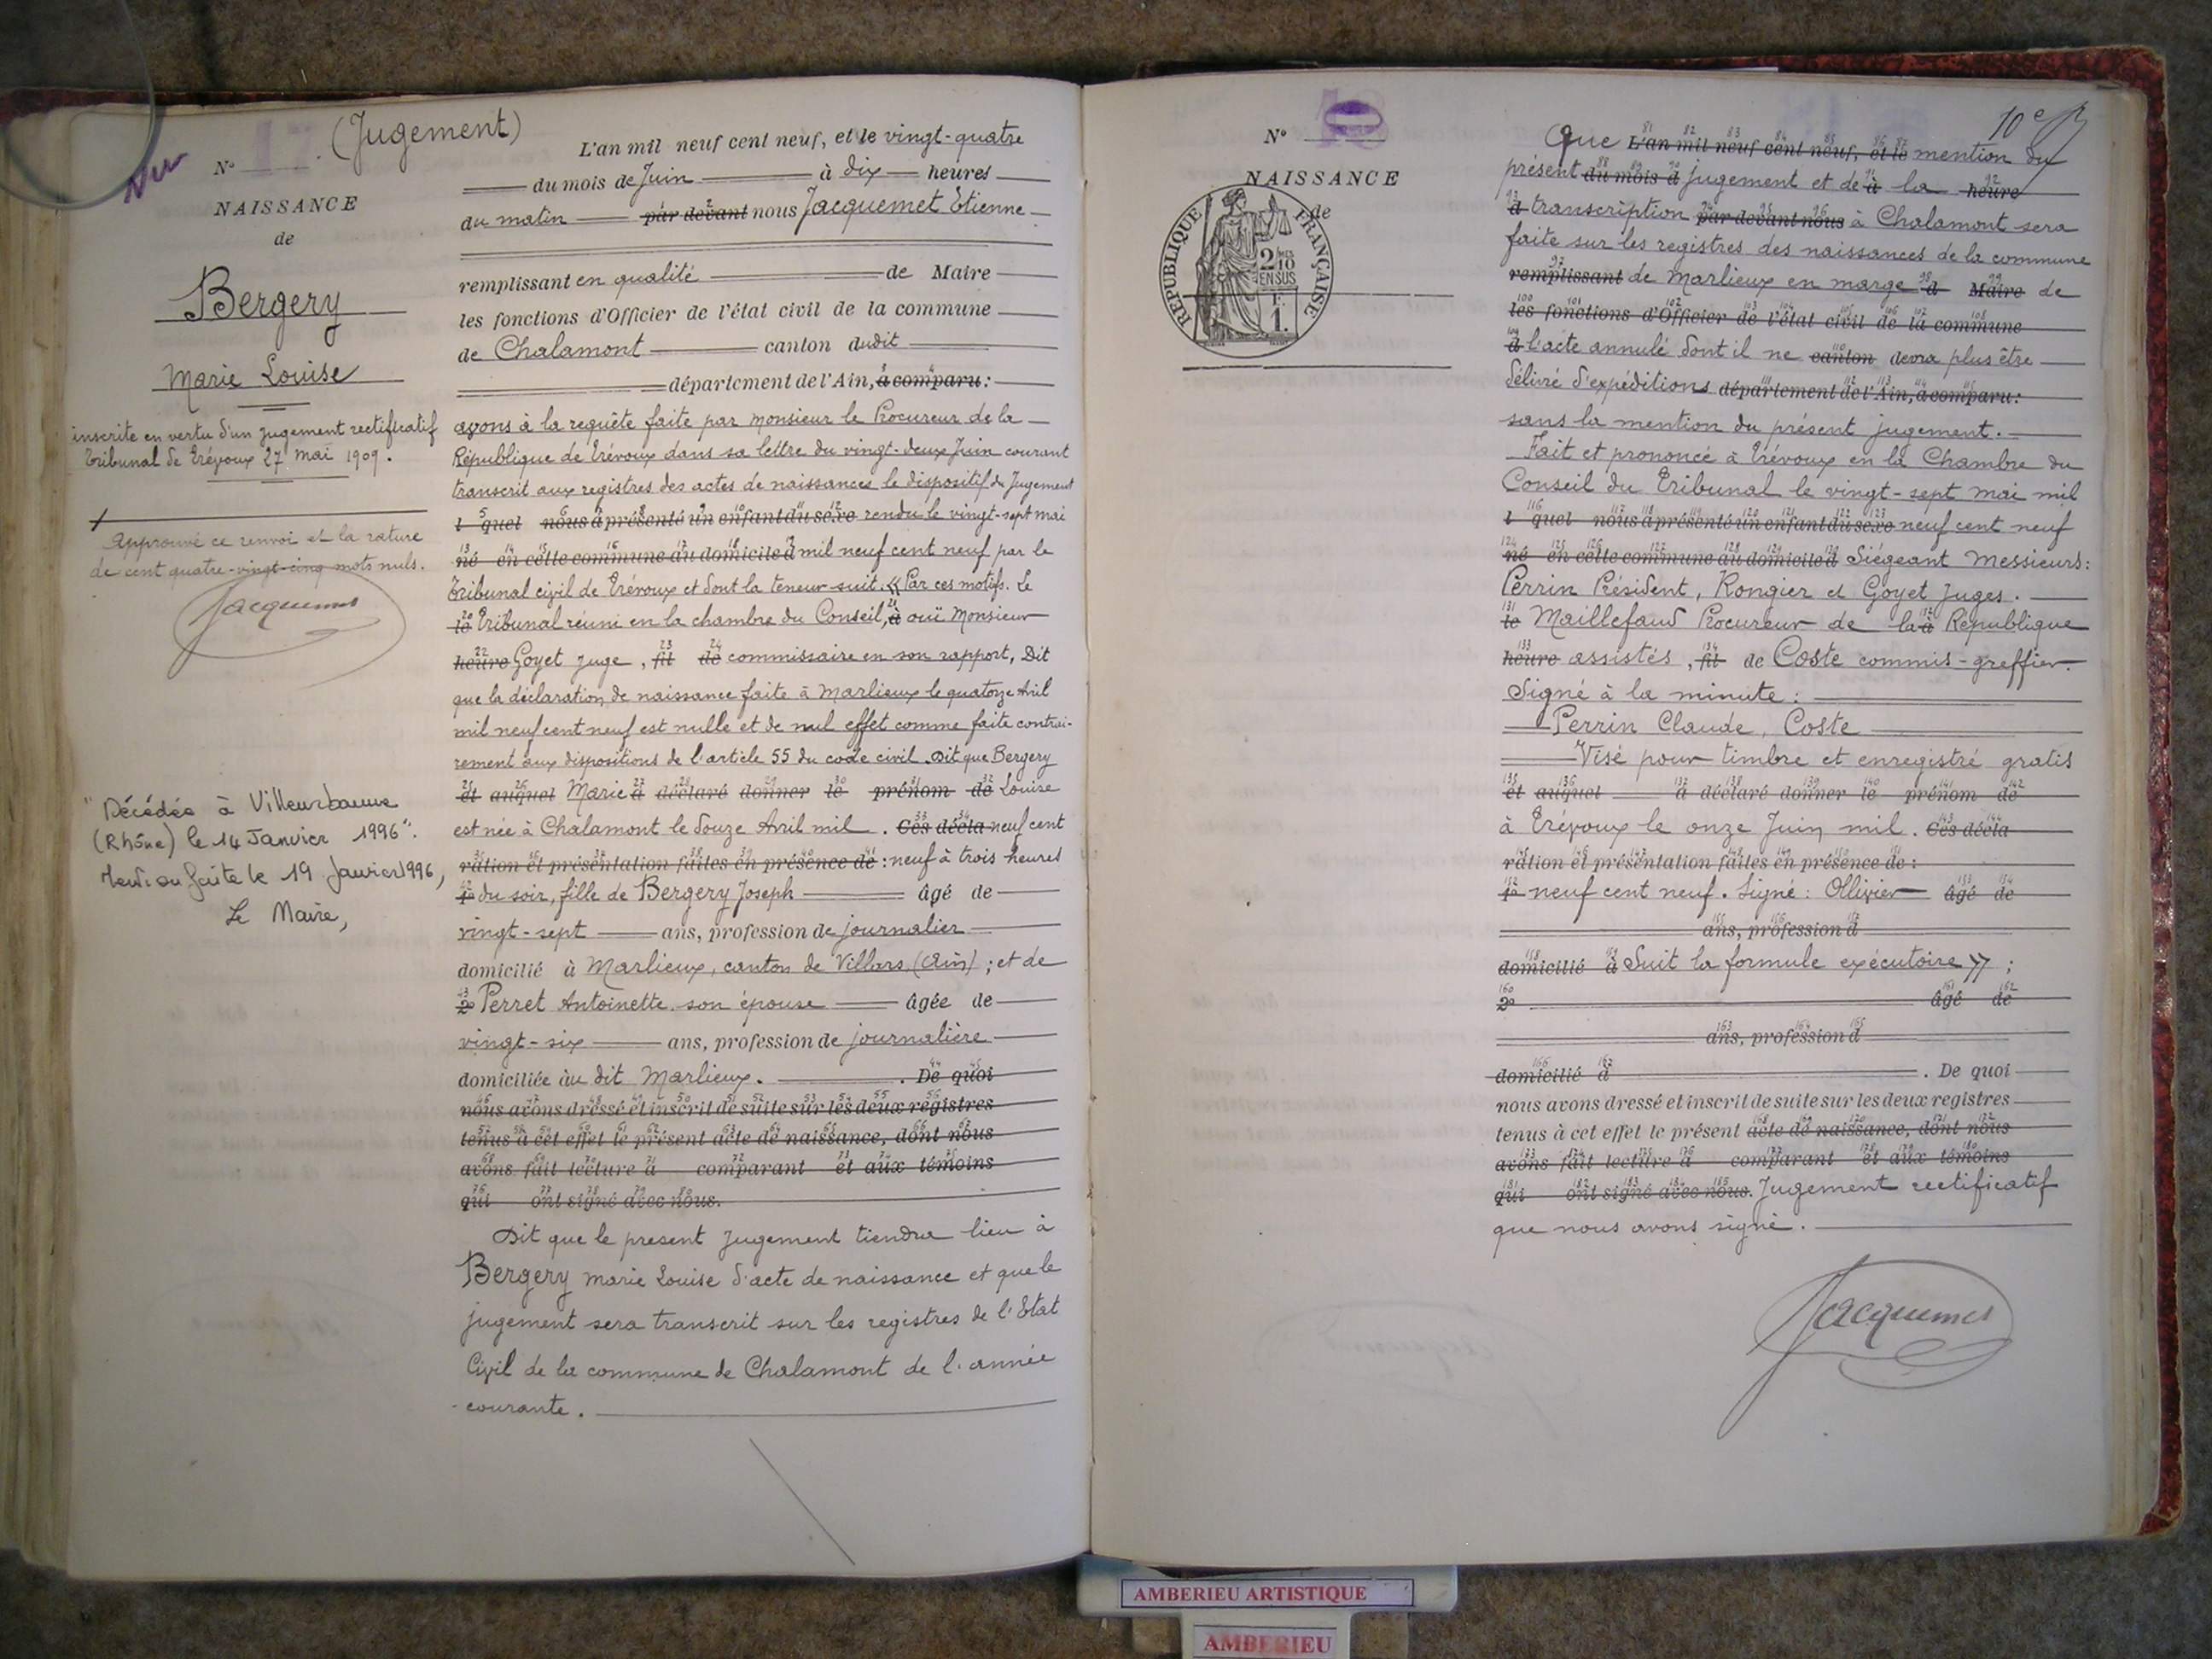 (Jugement)
Nº 17.
NAISSANCE
de
Bergery
Marie Louise
inscrite en vertu d'un jugement rectificatif
Tribunal de Trévoux 27 mai 1909.
Approuvé ce renvoi et la rature
de cent quatre-vingt-cinq mots nuls.
Jacquemet
"Décédée à Villeurbanne
(Rhône) le 14 Janvier 1996".
Mention faite le 19 Janvier 1996,
Le Maire,
L'an mil neuf cent neuf, et le vingt-quatre
du mois de Juin à dix heures
du matin par devant nous Jacquemet Etienne
remplissant en qualité de Maire
les fonctions d'Officier de l'état civil de la commune
de Chalamont canton dudit
département de l'Ain, a comparu:
avons à la requête faite par Monsieur le Procureur de la
République de Trévoux dans sa lettre du vingt-deux Juin courant
transcrit aux registres des actes de naissances le dispositif du Jugement
l quel nous a présenté un enfant du sexe rendu le vingt-sept mai
né en cette commune au domicile d mil neuf cent neuf par le
Tribunal civil de Trévoux et dont la teneur suit. « Par ces motifs. Le
le Tribunal réuni en la chambre du Conseil, à ouï Monsieur
heure Goyet juge, fil de commissaire en son rapport, Dit
que la déclaration de naissance faite à Marlieux le quatorze Avril
mil neuf cent neuf est nulle et de nul effet comme faite contrai-
rement aux dispositions de l'article 55 du code civil. Dit que Bergery
et auquel Marie a déclaré donner le prénom de Louise
est née à Chalamont le douze Avril mil . Ces décla neuf cent
ration et présentation faites en présence de : neuf à trois heures
1º du soir, fille de Bergery Joseph âgé de
vingt-sept ans, profession de journalier
domicilié à Marlieux, canton de Villars (Ain) ; et de
2º Perret Antoinette son épouse âgée de
vingt-six ans, profession de journalière
domiciliée au dit Marlieux. . De quoi
nous avons dressé et inscrit de suite sur les deux registres
tenus à cet effet le présent acte de naissance, dont nous
avons fait lecture à comparant et aux témoins
qui ont signé avec nous.
Dit que le present Jugement tiendra lieu à
Bergery Marie Louise d'acte de naissance et que le
jugement sera transcrit sur les registres de l'Etat
Civil de la commune de Chalamont de l'année
courante.
Nº
NAISSANCE
de
RÉPUBLIQUE FRANÇAISE
2/10
EN SUS
1 F.
10e
Que L'an mil neuf cent neuf, et le mention du
présent du mois d jugement et de à la heure
d transcription par devant nous à Chalamont sera
faite sur les registres des naissances de la commune
remplissant de Marlieux en marge d Maire de
les fonctions d'Officier de l'état civil de la commune
d l'acte annulé dont il ne canton devra plus être
délivré d'expéditions département de l'Ain, a comparu:
sans la mention du présent jugement.
Fait et prononcé à Trévoux en la Chambre du
Conseil du Tribunal le vingt-sept mai mil
l quel nous a présenté un enfant du sexe neuf cent neuf
né en cette commune au domicile d Siégeant Messieurs:
Perrin Président, Rongier et Goyet juges.
le Maillefaud Procureur de la à République
heure assistés, fil de Coste commis-greffier.
Signé à la minute:
Perrin Claude, Coste
Visé pour timbre et enregistré gratis
et auquel a déclaré donner le prénom de
à Trévoux le onze Juin mil . Ces décla
ration et présentation faites en présence de :
1º neuf cent neuf. Signé: Ollivier âgé de
ans, profession d
domicilié à Suit la formule exécutoire » ;
2º âgé de
ans, profession d
domicilié à . De quoi
nous avons dressé et inscrit de suite sur les deux registres
tenus à cet effet le présent acte de naissance, dont nous
avons fait lecture à comparant et aux témoins
qui ont signé avec nous. Jugement rectificatif
que nous avons signé.
Jacquemet
AMBERIEU ARTISTIQUE
AMBERIEU